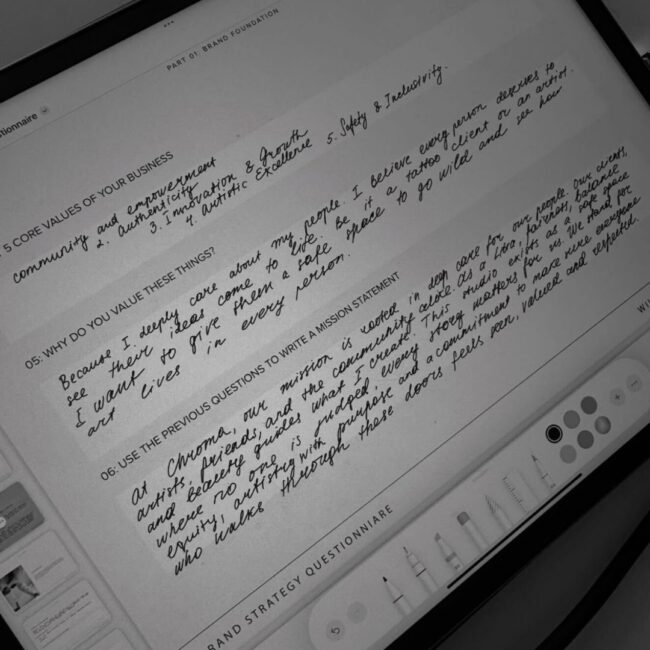 PART 01: BRAND FOUNDATION
stionnaire
5 CORE VALUES OF YOUR BUSINESS
community and empowerment
2. Authenticity
3. Innovation & Growth
4. Autistic Excellence 5. Safety & Inclusivity.
05: WHY DO YOU VALUE THESE THINGS?
Because I deeply care about my people. I believe every person deserves to
see their ideas come to life. Be it a tattoo client or an artist.
I want to give them a safe space to go wild and see how
art lives in every person.
06: USE THE PREVIOUS QUESTIONS TO WRITE A MISSION STATEMENT
At Chroma, our mission is rooted in deep care for our people. Our clients,
artists, friends, and the community alike. As a Libra, fairness, balance,
and beauty guides what I create. This studio exists as a safe space
where no one is judged, every story matters for us. We stand for
equity, artistry with purpose and a commitment to make sure everyone
who walks through these doors feels seen, valued and respected.
RAND STRATEGY QUESTIONNIARE